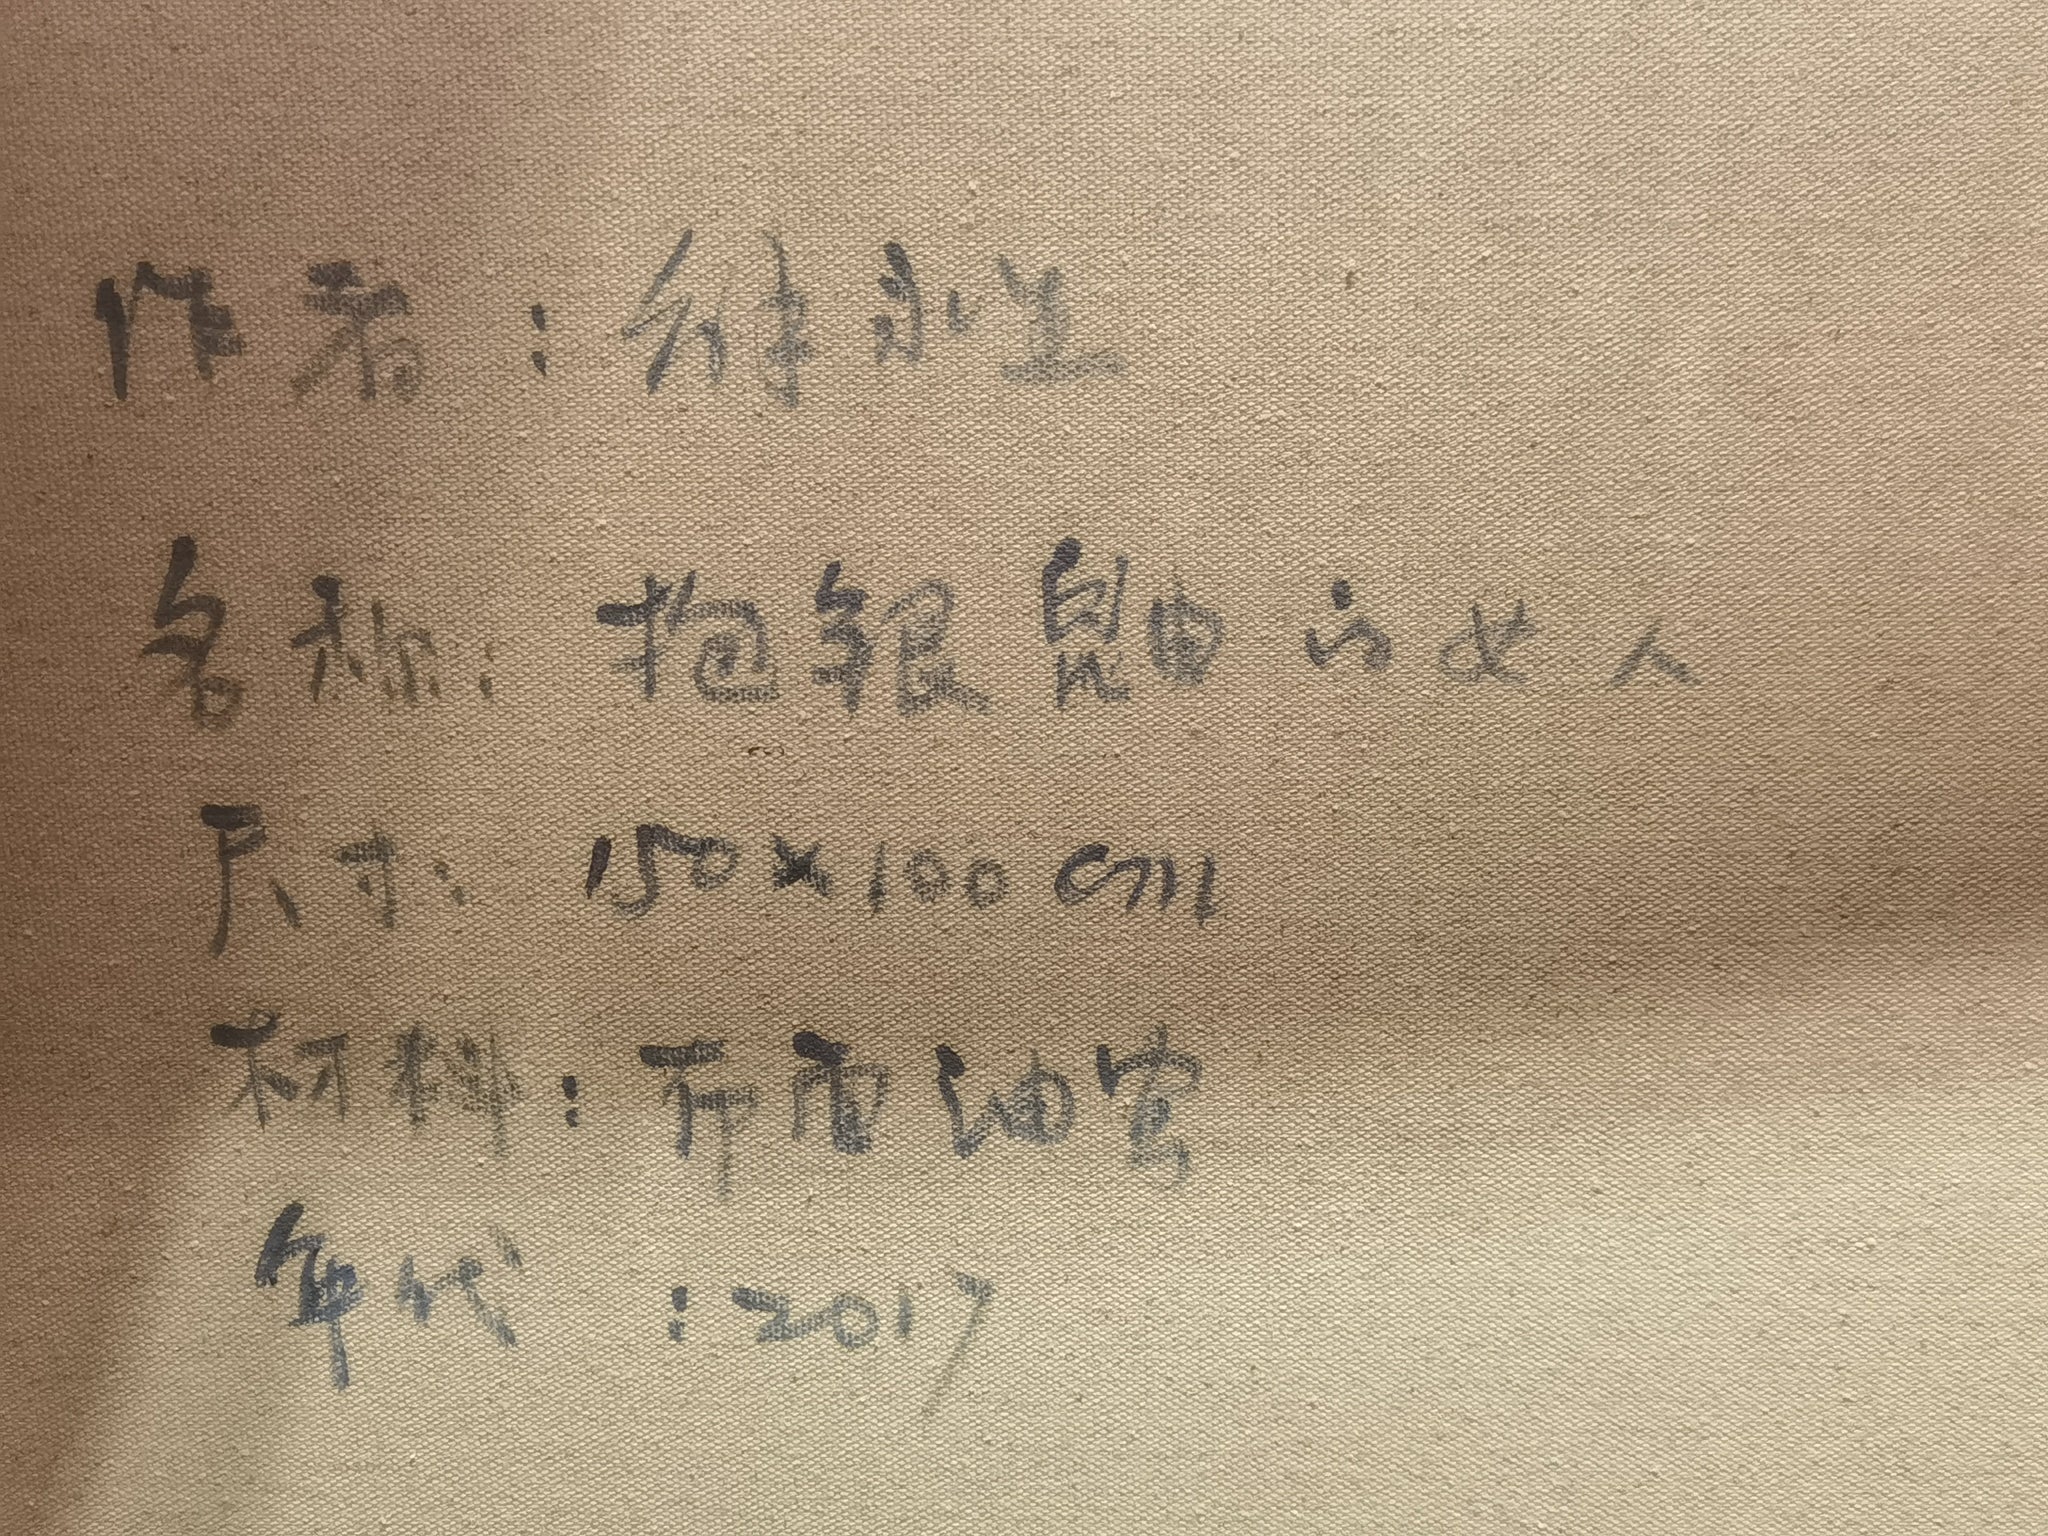 作者：永生
名称：抱银鼬的女人
尺寸：150×100cm
材料：布面油画
年代：2017